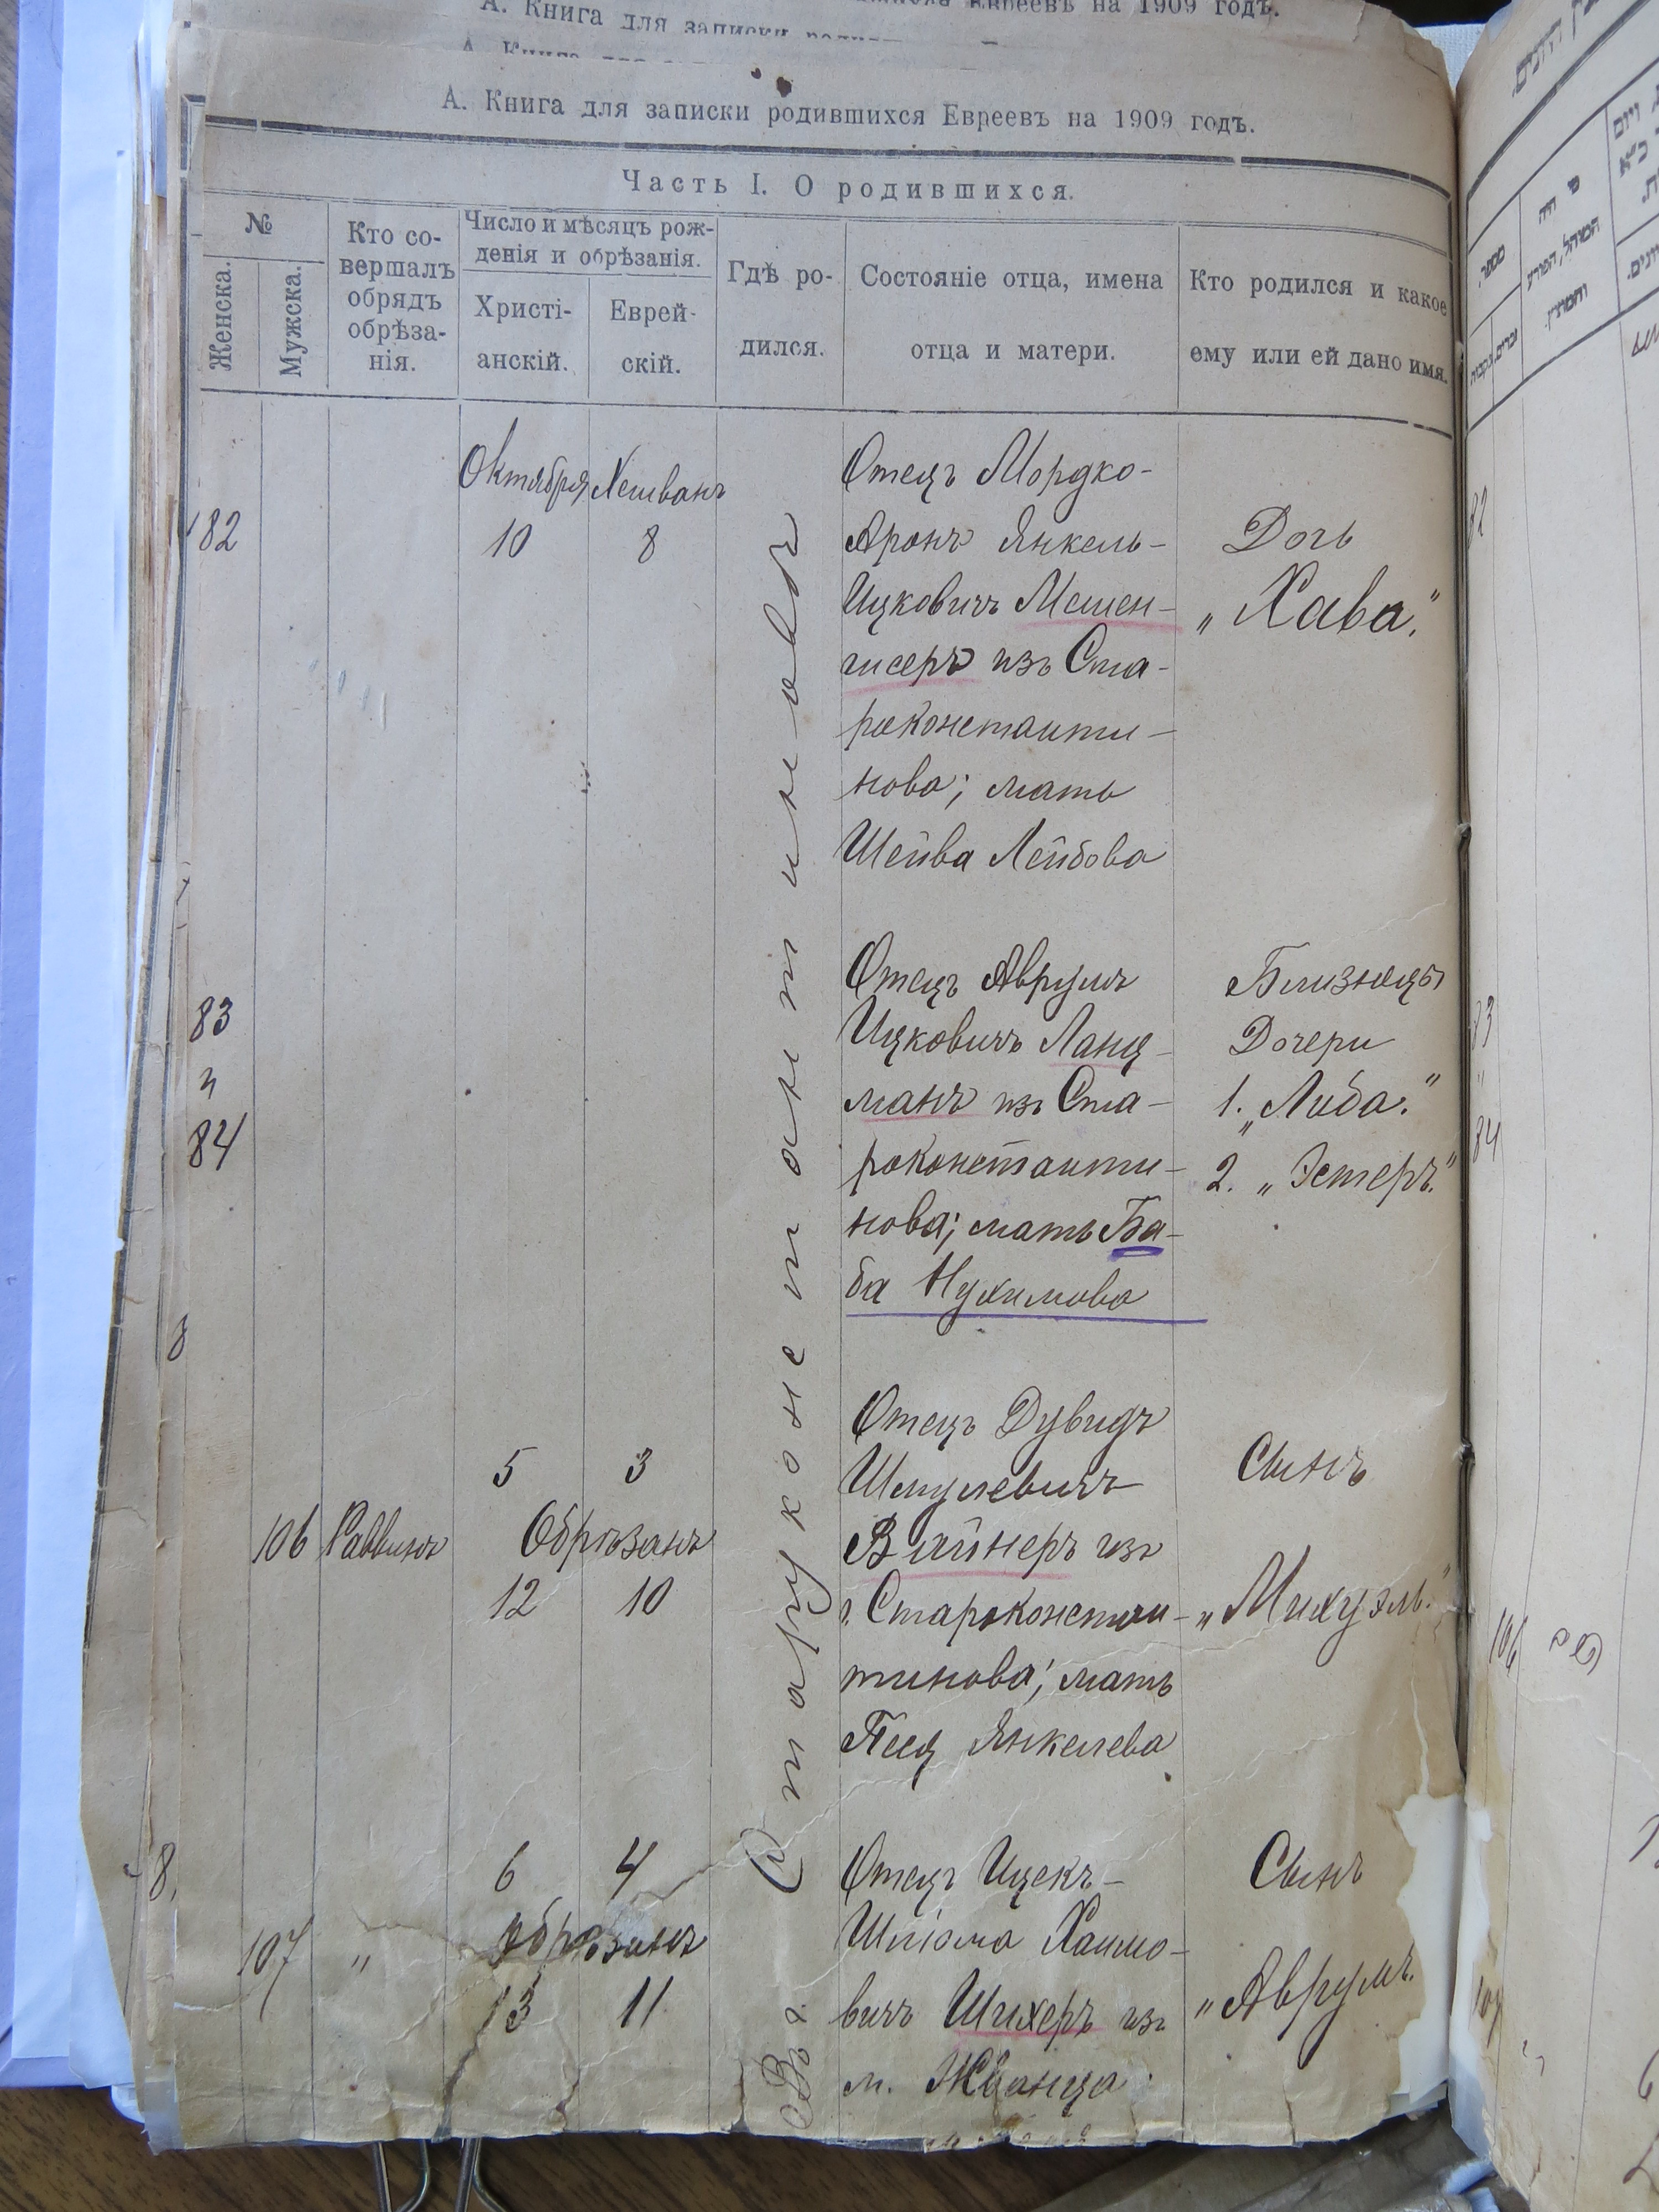 А. Книга для записки
Евреевъ на 1909 годъ.
А. Книга для
А. Книга для записки родившихся Евреевъ на 1909 годъ.
Часть I. О родившихся.
№
Женска.
Мужска.
Кто со-
вершалъ
обрядъ
обрѣза-
нія.
Число и мѣсяцъ рож-
денія и обрѣзанія.
Христі-
анскій.
Еврей-
скій.
Гдѣ ро-
дился.
Состояніе отца, имена
отца и матери.
Кто родился и какое
ему или ей дано имя.
Въ г. Староконстантиновѣ
82
Октября
10
Хешванъ
8
Отецъ Мордко-
Аронъ Янкель-
Ицковичъ Мешен-
гисеръ изъ Ста-
роконстанти-
нова; мать
Шейва Лейбова
Дочь
„Хава."
83
и
84
Отецъ Аврумъ
Ицковичъ Ланц-
манъ изъ Ста-
роконстанти-
нова; мать Ба-
ба Нухимова
Близнецы
Дочери
1. „Либа."
2. „Эстеръ."
106
Раввинъ
5 3
Обрѣзанъ
12 10
Отецъ Дувидъ
Шмулевичъ
Вайнеръ изъ
г. Староконстан-
тинова; мать
Песя Янкелева
Сынъ
„Михуэль."
107
„
6 4
Обрѣзанъ
13 11
Отецъ Ицекъ-
Шліома Хаимо-
вичъ Шихеръ изъ
м. Жванца
Сынъ
„Аврумъ."